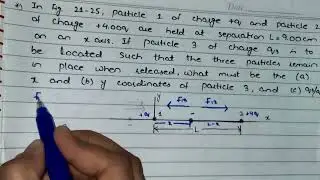 In Fig 21-25, particle 1 of charge +q and particle 2
of charge +4.00q are held at separation L=9.00cm
on an x axis. If particle 3 of charge q3 is to
be located such that the three particles remain
in place when released, what must be the (a)
x and (b) y coordinates of particle 3, and (c)
y
f13 f23
+q 1 2 +4q x
x L-x
L